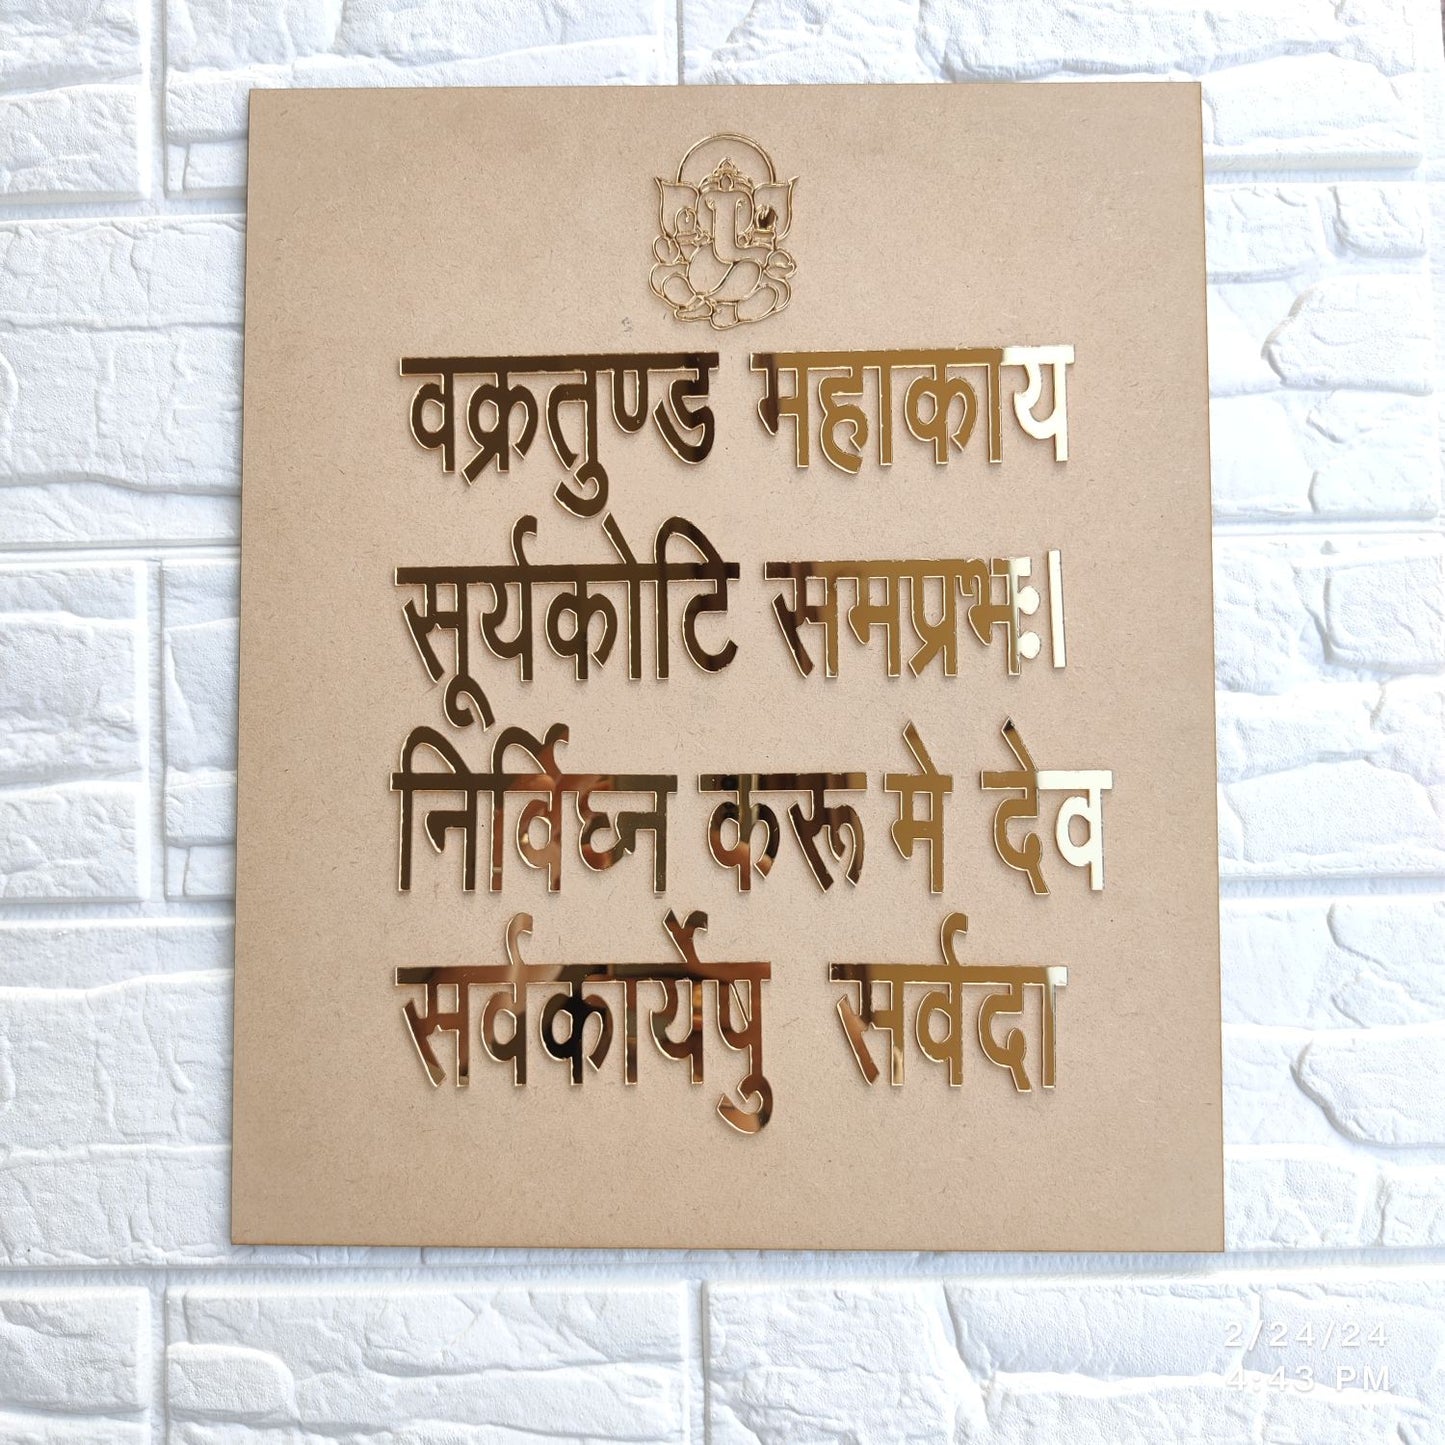 वक्रतुण्ड महाकाय
सूर्यकोटि समप्रभः।
निर्विघ्न करू मे देव
सर्वकार्येपु सर्वदा
2/24/24
4:43 PM